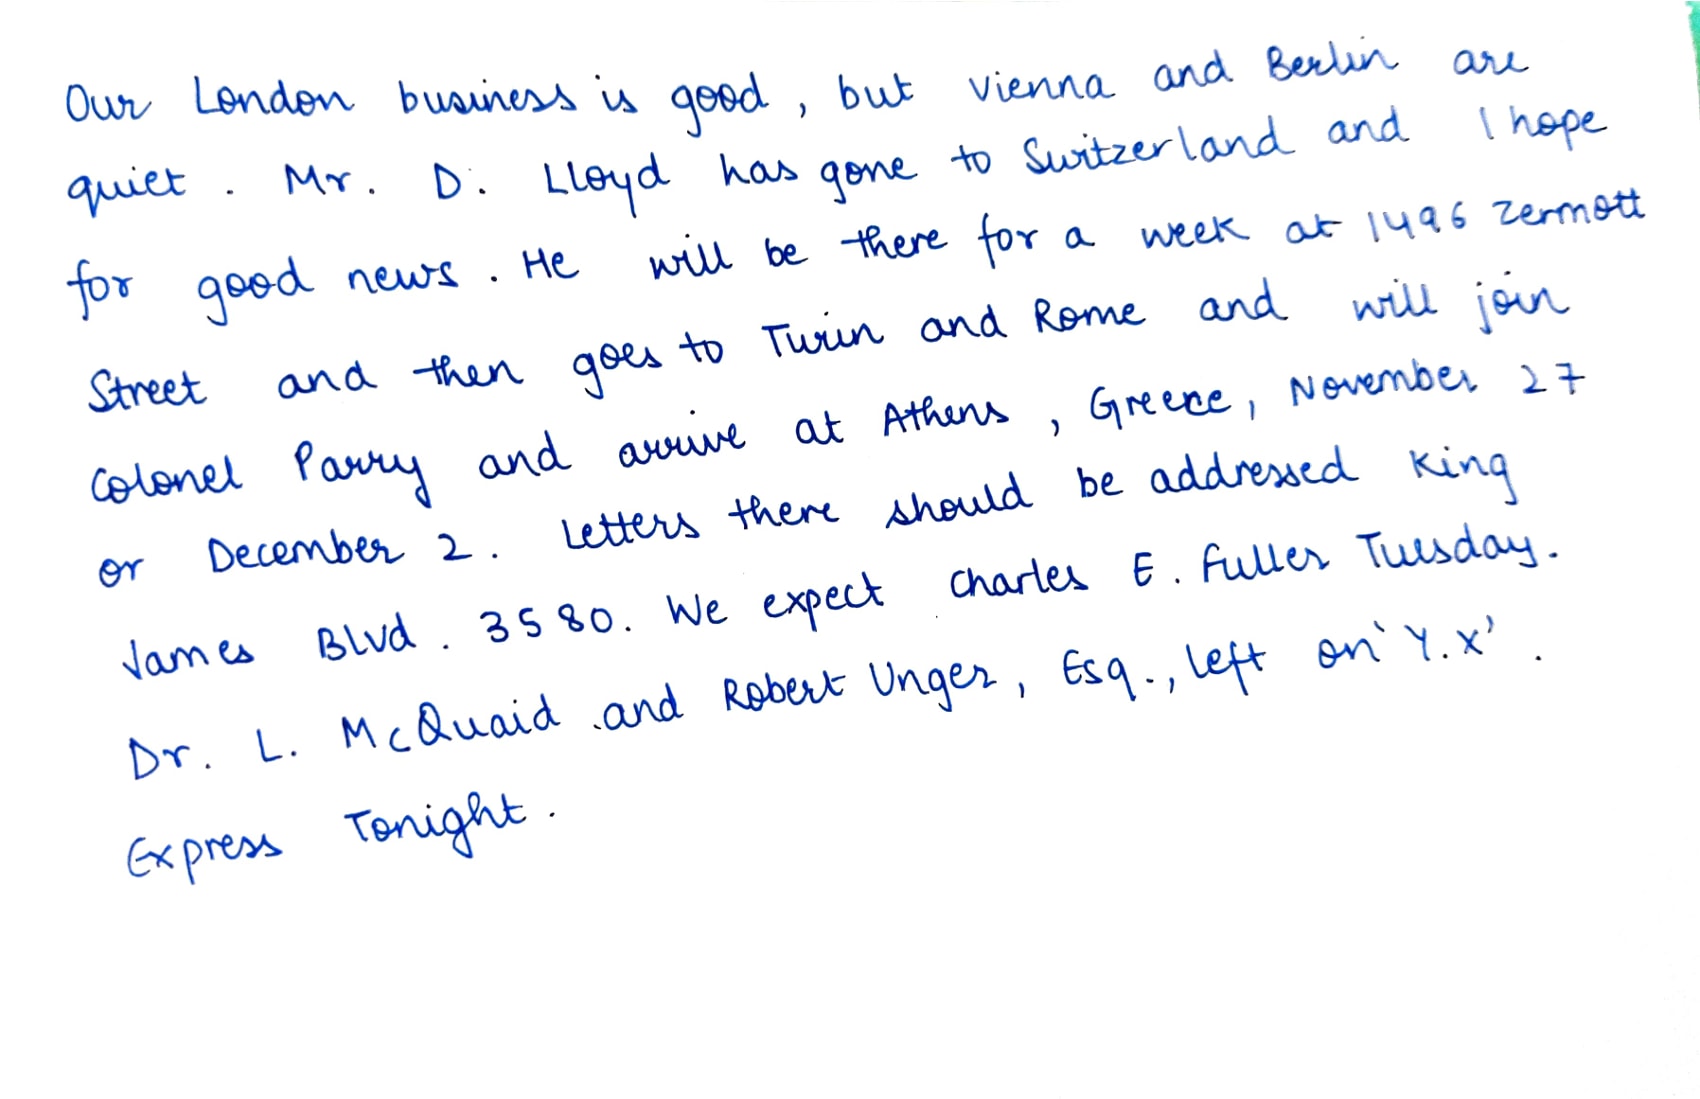 Our London business is good, but Vienna and Berlin are
quiet. Mr. D. Lloyd has gone to Switzerland and I hope
for good news. He will be there for a week at 1496 Zermott
Street and then goes to Turin and Rome and will join
Colonel Parry and arrive at Athens, Greece, November 27
or December 2. Letters there should be addressed King
James Blvd. 3580. We expect Charles E. Fuller Tuesday.
Dr. L. McQuaid and Robert Unger, Esq., left on 'Y.X'.
Express Tonight.